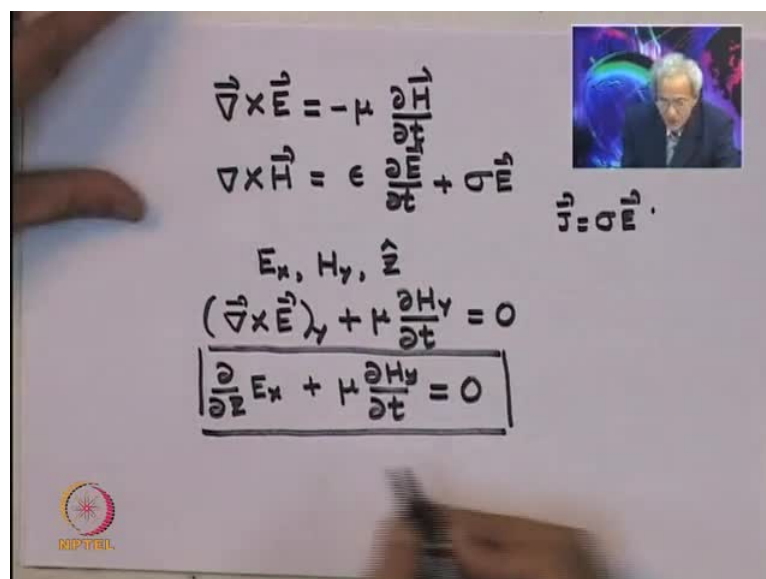 ∇⃗ × E⃗ = - μ ∂H⃗/∂t
∇ × H⃗ = ϵ ∂E⃗/∂t + σE⃗
J⃗ = σE⃗ .
Eₓ, Hᵧ, ẑ
(∇⃗ × E⃗)ᵧ + μ ∂Hᵧ/∂t = 0
∂/∂z Eₓ + μ ∂Hᵧ/∂t = 0
NPTEL